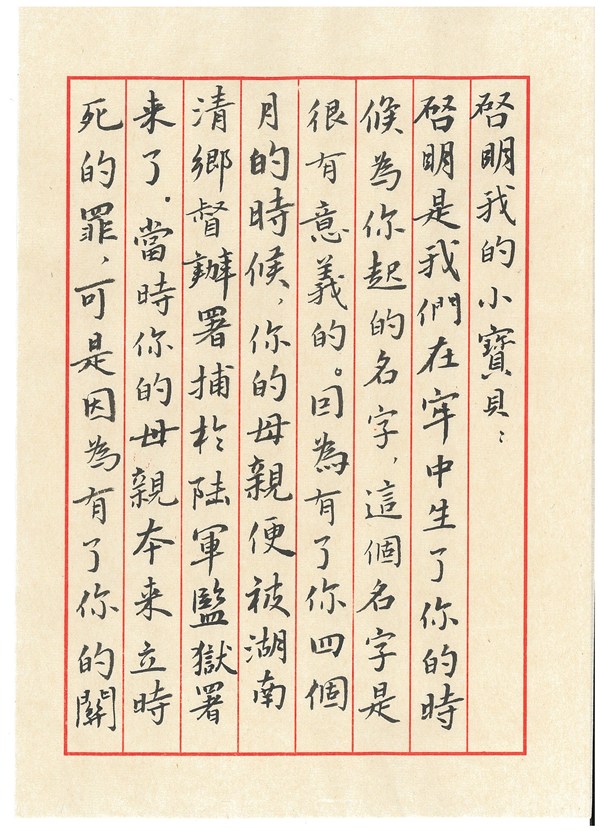 啓明我的小寶貝：
啓明是我們在牢中生了你的時
候為你起的名字，這個名字是
很有意義的。因為有了你四個
月的時候，你的母親便被湖南
清鄉督辦署捕於陸軍監獄署
来了．當時你的母親本来立時
死的罪，可是因為有了你的關